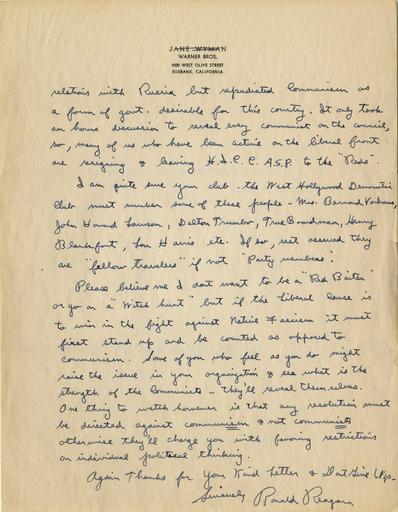 JANE WYMAN
WARNER BROS.
4000 WEST OLIVE STREET
BURBANK, CALIFORNIA
relations with Russia but repudiated Communism as
a form of govt. desirable for this country. It only took
an hours discussion to reveal every communist on the council,
so, many of us who have been active on the liberal front
are resigning & leaving H.I.C.C.A.S.P. to the "Reds".
I am quite sure your club - the West Hollywood Democratic
Club must number some of these people - Mrs. Bernard Vorhaus,
John Howard Lawson, Dalton Trumbo, True Boardman, Henry
Blankfort, Lou Harris etc. If so, rest assured they
are "fellow travelers" if not "Party members".
Please believe me I dont want to be a "Red Baiter"
or go on a "Witch hunt" but if the Liberal cause is
to win in the fight against Native Fascism it must
first stand up and be counted as opposed to
communism. Some of you who feel as you do might
raise the issue in your organization & see what is the
strength of the Communists - they'll reveal themselves.
One thing to watch however is that any resolution must
be directed against communism & not communists
otherwise they'll charge you with favoring restrictions
on individual political thinking.
Again Thanks for Your Kind Letter & Dont Give Up.-
Sincerely Ronald Reagan